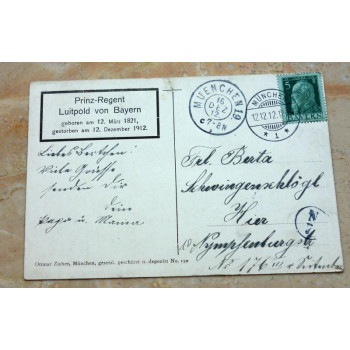 Prinz-Regent
Luitpold von Bayern
geboren am 12. März 1821,
gestorben am 12. Dezember 1912.
Liebes Bertchen!
Viele Grüsse
senden Dir
Deine
Papa u. Mama
Ottmar Zieher, München, gesetzl. geschützt u. deponirt No.
MUENCHEN 19
16
DEZ
7-8N
MÜNCHEN
12.12.12.
* 1 *
5
BAYERN
Frl. Berta
Schwingenschlögl
Hier
Nymphenburgstr
No 176